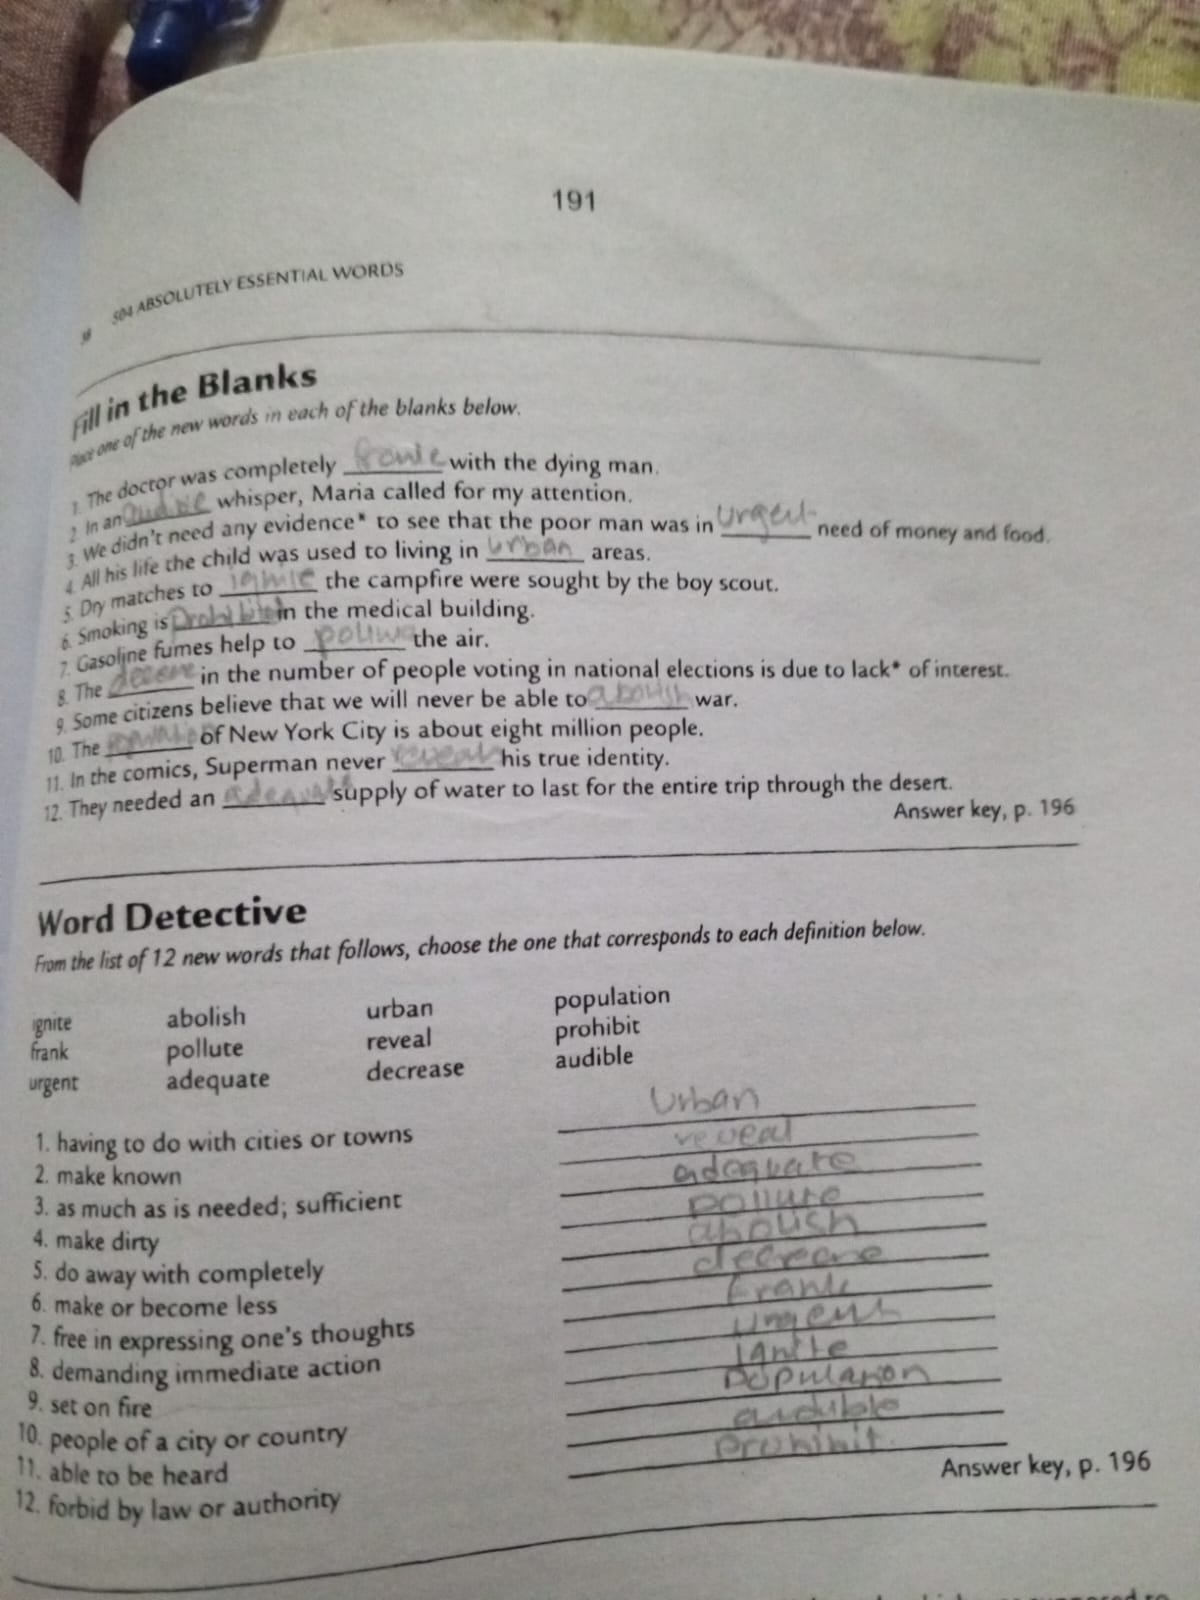 191
38 504 ABSOLUTELY ESSENTIAL WORDS
Fill in the Blanks
Place one of the new words in each of the blanks below.
1. The doctor was completely with the dying man.
2. In an whisper, Maria called for my attention.
3. We didn't need any evidence* to see that the poor man was in urgent need of money and food.
4. All his life the child was used to living in urban areas.
5. Dry matches to ignite the campfire were sought by the boy scout.
6. Smoking is prohibited in the medical building.
7. Gasoline fumes help to the air.
8. The in the number of people voting in national elections is due to lack* of interest.
9. Some citizens believe that we will never be able to abolish war.
10. The of New York City is about eight million people.
11. In the comics, Superman never reveals his true identity.
12. They needed an adequate supply of water to last for the entire trip through the desert.
Answer key, p. 196
Word Detective
From the list of 12 new words that follows, choose the one that corresponds to each definition below.
ignite abolish urban population
frank pollute reveal prohibit
urgent adequate decrease audible
1. having to do with cities or towns Urban
2. make known reveal
3. as much as is needed; sufficient adequate
4. make dirty pollute
5. do away with completely abolish
6. make or become less
7. free in expressing one's thoughts Frank
8. demanding immediate action urgent
9. set on fire Ignite
10. people of a city or country
11. able to be heard audible
12. forbid by law or authority prohibit
Answer key, p. 196